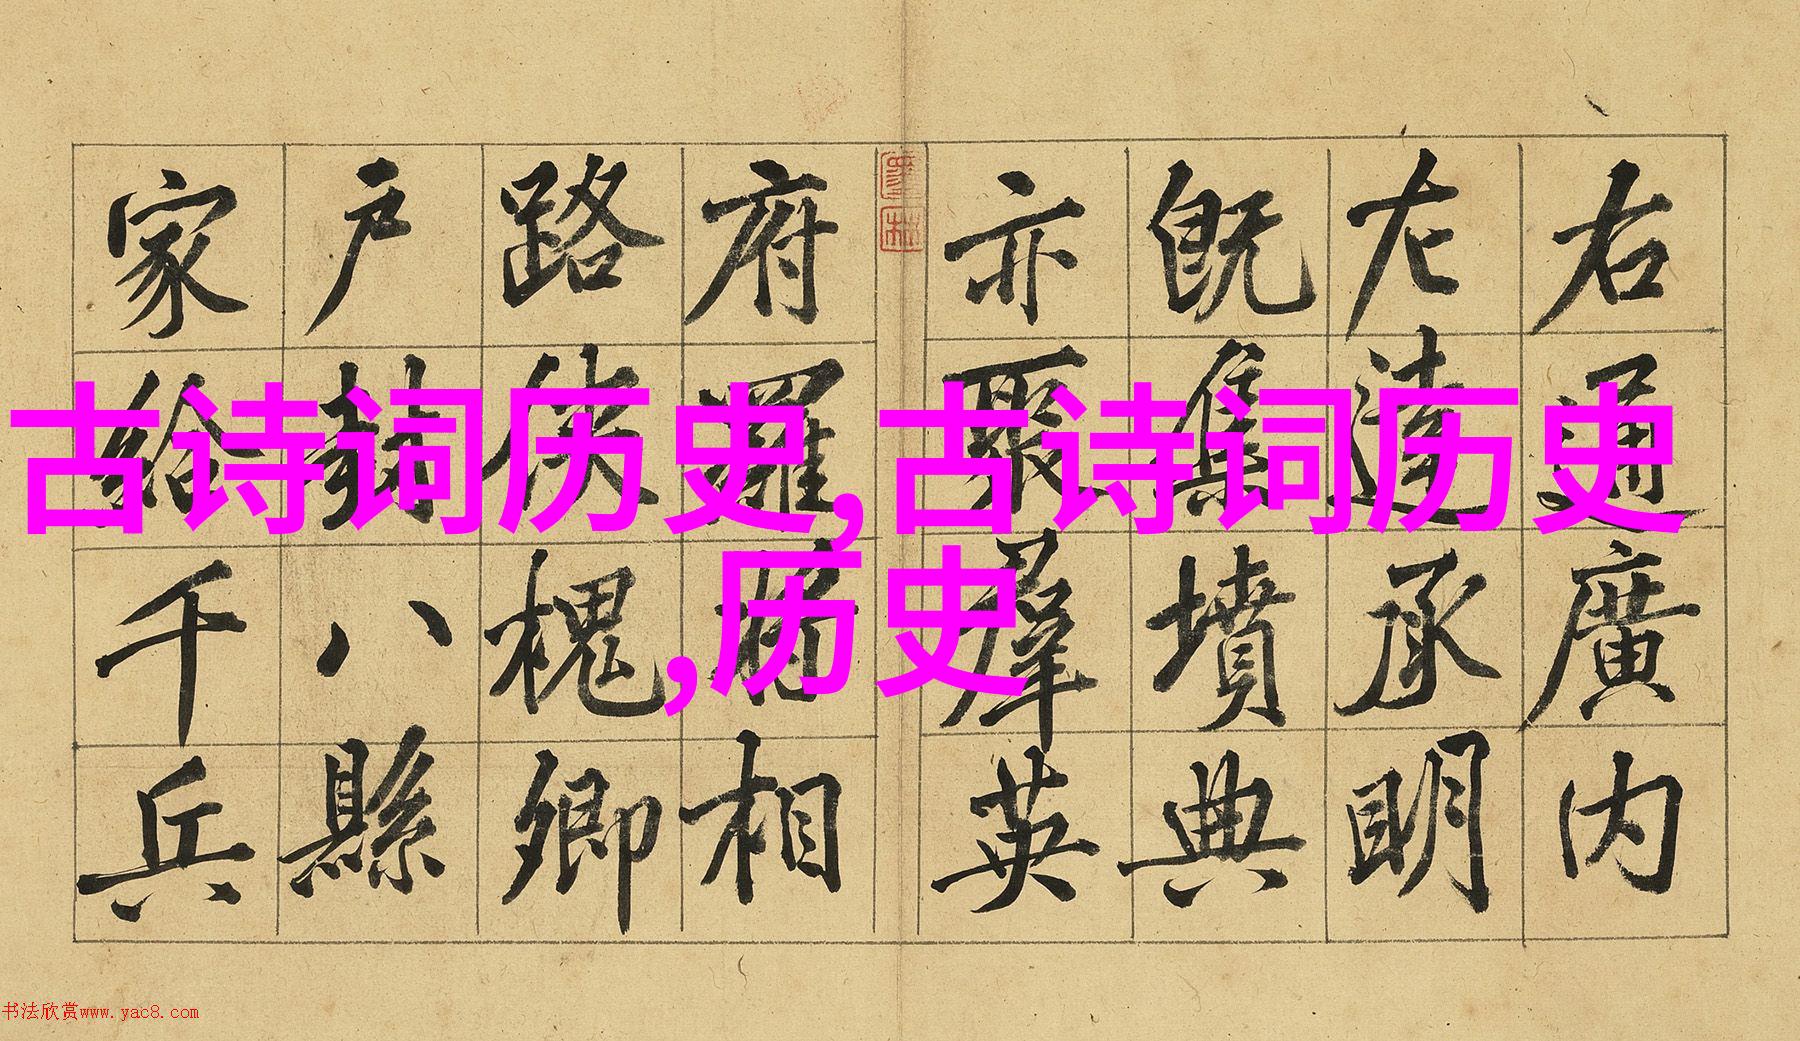 右通廣内
左達承明
既集墳典
亦聚羣英
府羅将相
路俠槐卿
户封八縣
家給千兵
古诗词历史,古诗词历史
,历史
书法欣赏www.yac8.com